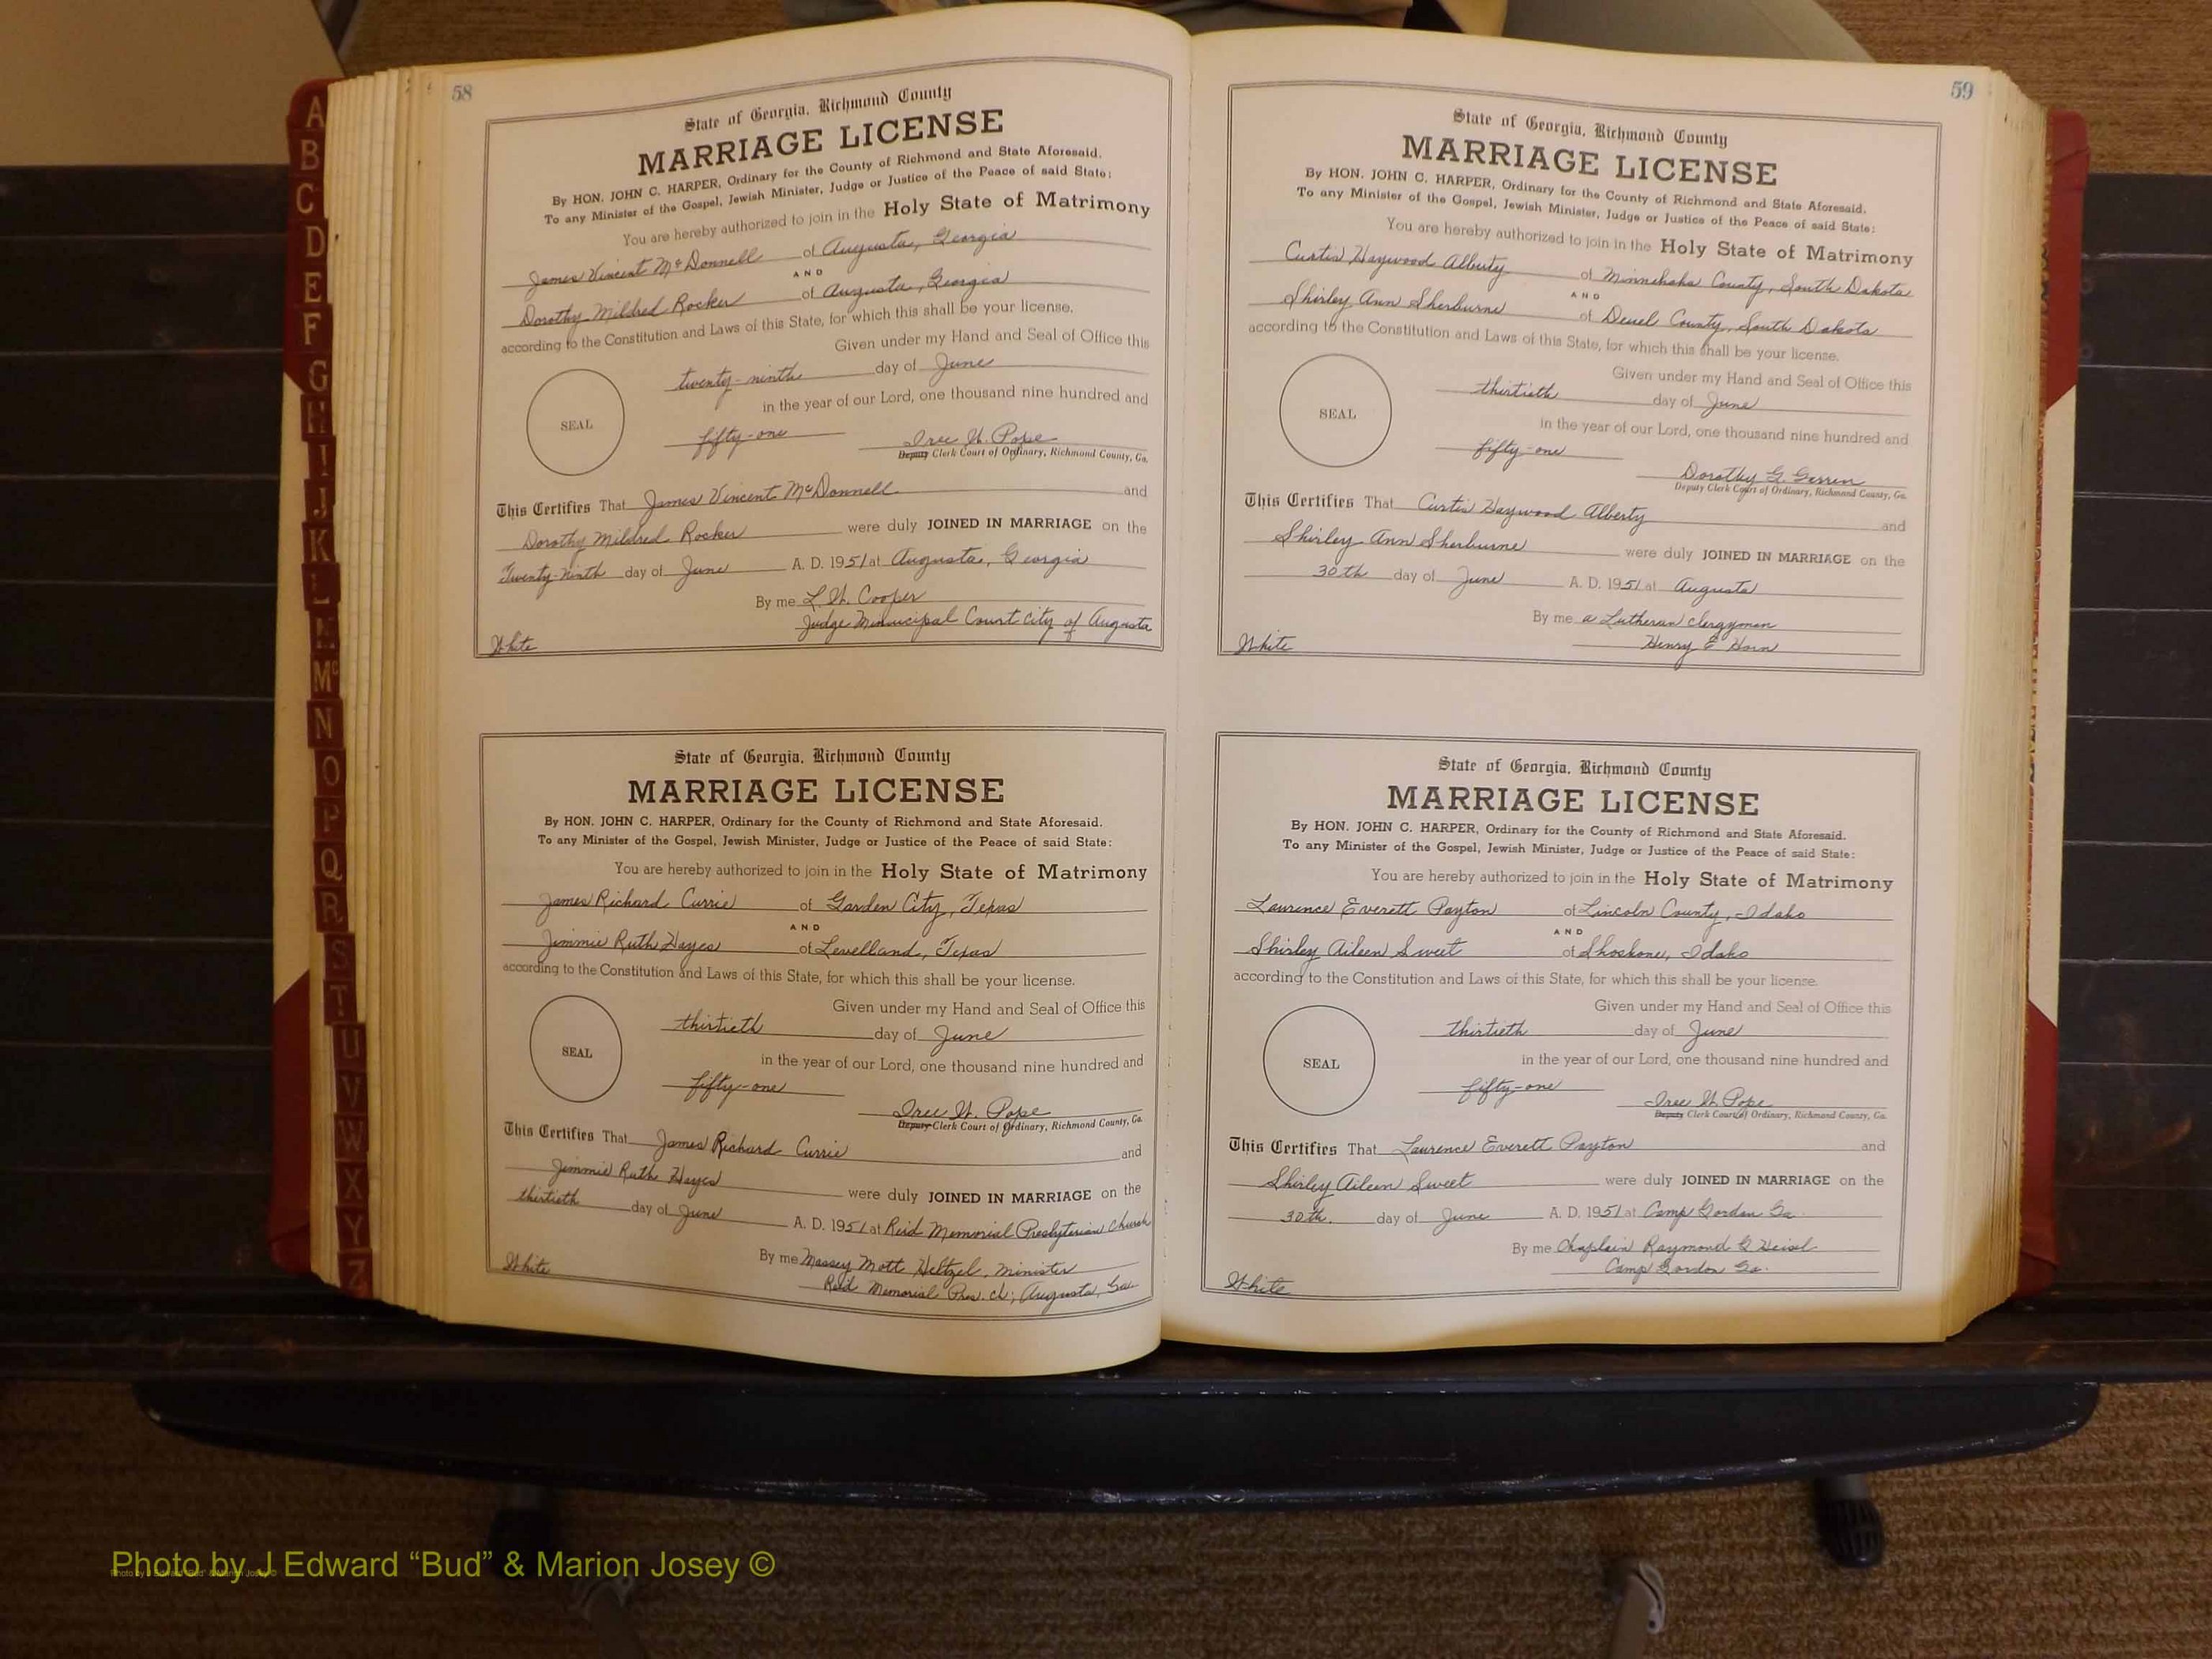 58
State of Georgia, Richmond County
MARRIAGE LICENSE
By HON. JOHN C. HARPER, Ordinary for the County of Richmond and State Aforesaid.
To any Minister of the Gospel, Jewish Minister, Judge or Justice of the Peace of said State:
You are hereby authorized to join in the Holy State of Matrimony
James Vincent McDonnell of Augusta, Georgia
AND
Dorothy Mildred Rocker of Augusta, Georgia
according to the Constitution and Laws of this State, for which this shall be your license.
Given under my Hand and Seal of Office this
twenty-ninth day of June
in the year of our Lord, one thousand nine hundred and
SEAL
fifty-one
Iree W. Pope
Deputy Clerk Court of Ordinary, Richmond County, Ga.
This Certifies That James Vincent McDonnell and
Dorothy Mildred Rocker were duly JOINED IN MARRIAGE on the
Twenty-Ninth day of June A. D. 1951 at Augusta, Georgia
By me L. W. Cooper
Judge Municipal Court City of Augusta
White
State of Georgia, Richmond County
MARRIAGE LICENSE
By HON. JOHN C. HARPER, Ordinary for the County of Richmond and State Aforesaid.
To any Minister of the Gospel, Jewish Minister, Judge or Justice of the Peace of said State:
You are hereby authorized to join in the Holy State of Matrimony
James Richard Currie of Garden City, Texas
AND
Jimmie Ruth Hayes of Levelland, Texas
according to the Constitution and Laws of this State, for which this shall be your license.
Given under my Hand and Seal of Office this
thirtieth day of June
SEAL
in the year of our Lord, one thousand nine hundred and
fifty-one
Iree W. Pope
Deputy Clerk Court of Ordinary, Richmond County, Ga.
This Certifies That James Richard Currie and
Jimmie Ruth Hayes were duly JOINED IN MARRIAGE on the
thirtieth day of June A. D. 1951 at Reid Memorial Presbyterian Church
By me Massey Mott Heltzel, Minister
Reid Memorial Pres. Ch; Augusta, Ga
White
59
State of Georgia, Richmond County
MARRIAGE LICENSE
By HON. JOHN C. HARPER, Ordinary for the County of Richmond and State Aforesaid.
To any Minister of the Gospel, Jewish Minister, Judge or Justice of the Peace of said State:
You are hereby authorized to join in the Holy State of Matrimony
Curtis Haywood Alberty of Minnehaha County, South Dakota
AND
Shirley Ann Sherburne of Deuel County, South Dakota
according to the Constitution and Laws of this State, for which this shall be your license.
Given under my Hand and Seal of Office this
thirtieth day of June
SEAL
in the year of our Lord, one thousand nine hundred and
fifty-one
Dorothy G.
Deputy Clerk Court of Ordinary, Richmond County, Ga.
This Certifies That Curtis Haywood Alberty and
Shirley Ann Sherburne were duly JOINED IN MARRIAGE on the
30th day of June A. D. 1951 at Augusta
By me a Lutheran clergyman
Henry E Horn
White
State of Georgia, Richmond County
MARRIAGE LICENSE
By HON. JOHN C. HARPER, Ordinary for the County of Richmond and State Aforesaid.
To any Minister of the Gospel, Jewish Minister, Judge or Justice of the Peace of said State:
You are hereby authorized to join in the Holy State of Matrimony
Laurence Everett Payton of Lincoln County, Idaho
AND
Shirley Aileen Sweet of Shoshone, Idaho
according to the Constitution and Laws of this State, for which this shall be your license.
Given under my Hand and Seal of Office this
thirtieth day of June
SEAL
in the year of our Lord, one thousand nine hundred and
fifty-one
Iree W. Pope
Deputy Clerk Court of Ordinary, Richmond County, Ga.
This Certifies That Laurence Everett Payton and
Shirley Aileen Sweet were duly JOINED IN MARRIAGE on the
30th. day of June A. D. 1951 at Camp Gordon Ga.
By me Chaplain Raymond G Heisel
Camp Gordon Ga.
White
A
B
C
D
E
F
G
H
I
J
K
L
M
Mc
N
O
P
Q
R
S
T
U
V
W
X
Y
Z
Photo by J Edward “Bud” & Marion Josey ©
Photo by J Edward "Bud" & Marion Josey ©